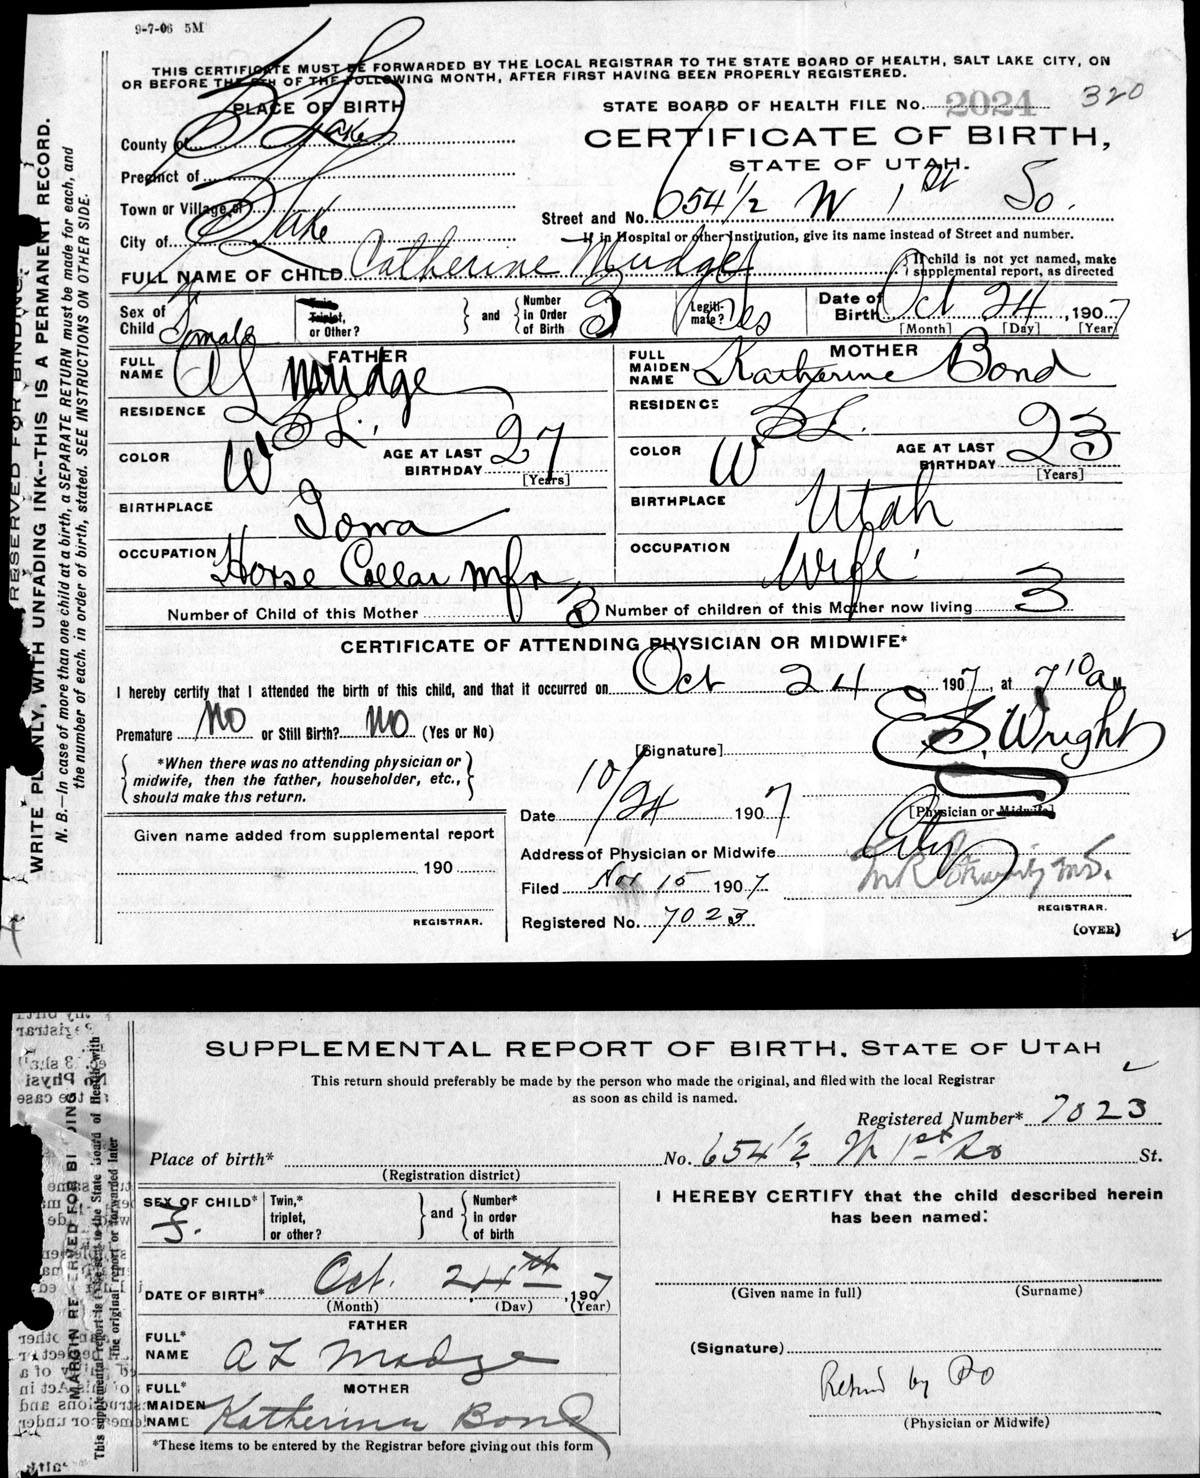 9-7-06 5M
THIS CERTIFICATE MUST BE FORWARDED BY THE LOCAL REGISTRAR TO THE STATE BOARD OF HEALTH, SALT LAKE CITY, ON
OR BEFORE THE 5TH OF THE FOLLOWING MONTH, AFTER FIRST HAVING BEEN PROPERLY REGISTERED.
PLACE OF BIRTH
STATE BOARD OF HEALTH FILE No. 2024 320
County of S Lake
CERTIFICATE OF BIRTH,
STATE OF UTAH.
Precinct of
Town or Village of
Street and No. 654 1/2 W 1st So.
City of S Lake
If in Hospital or other Institution, give its name instead of Street and number.
FULL NAME OF CHILD Catherine Mudge
If child is not yet named, make
supplemental report, as directed
Sex of Child Female
Twin, Triplet, or Other?
and
Number in Order of Birth 3
Legiti-mate? Yes
Date of Birth Oct 24, 1907
[Month] [Day] [Year]
FATHER
FULL NAME A L Mudge
MOTHER
FULL MAIDEN NAME Katherine Bond
RESIDENCE S L.
RESIDENCE S L.
COLOR W
AGE AT LAST BIRTHDAY 27 [Years]
COLOR W
AGE AT LAST BIRTHDAY 23 [Years]
BIRTHPLACE Iowa
BIRTHPLACE Utah
OCCUPATION Horse Collar mfr
OCCUPATION Wife
Number of Child of this Mother 3
Number of children of this Mother now living 3
CERTIFICATE OF ATTENDING PHYSICIAN OR MIDWIFE*
I hereby certify that I attended the birth of this child, and that it occurred on Oct 24 1907, at 7 10 a M
Premature No or Still Birth? No (Yes or No)
[Signature] E S. Wright
*When there was no attending physician or
midwife, then the father, householder, etc.,
should make this return.
Date 10/24 1907
[Physician or Midwife]
Given name added from supplemental report
190
REGISTRAR.
Address of Physician or Midwife City
Filed Nov 15 1907
M.D.
REGISTRAR.
Registered No. 7023
(OVER)
RESERVED FOR BINDING.
WRITE PLAINLY, WITH UNFADING INK--THIS IS A PERMANENT RECORD.
N. B.—In case of more than one child at a birth, a SEPARATE RETURN must be made for each, and
the number of each. in order of birth, stated. SEE INSTRUCTIONS ON OTHER SIDE.
SUPPLEMENTAL REPORT OF BIRTH, STATE OF UTAH
This return should preferably be made by the person who made the original, and filed with the local Registrar
as soon as child is named.
Registered Number* 7023
Place of birth* No. 654 1/2 W 1st So St.
(Registration district)
SEX OF CHILD* F.
Twin,* triplet, or other?
and
Number* in order of birth
I HEREBY CERTIFY that the child described herein
has been named:
DATE OF BIRTH* Oct. 24th, 1907
(Month) (Day) (Year)
(Given name in full) (Surname)
FATHER
FULL* NAME A L Madge
(Signature)
MOTHER
FULL* MAIDEN NAME Katherina Bond
Retnd by PO
(Physician or Midwife)
*These items to be entered by the Registrar before giving out this form
MARGIN RESERVED FOR BINDING